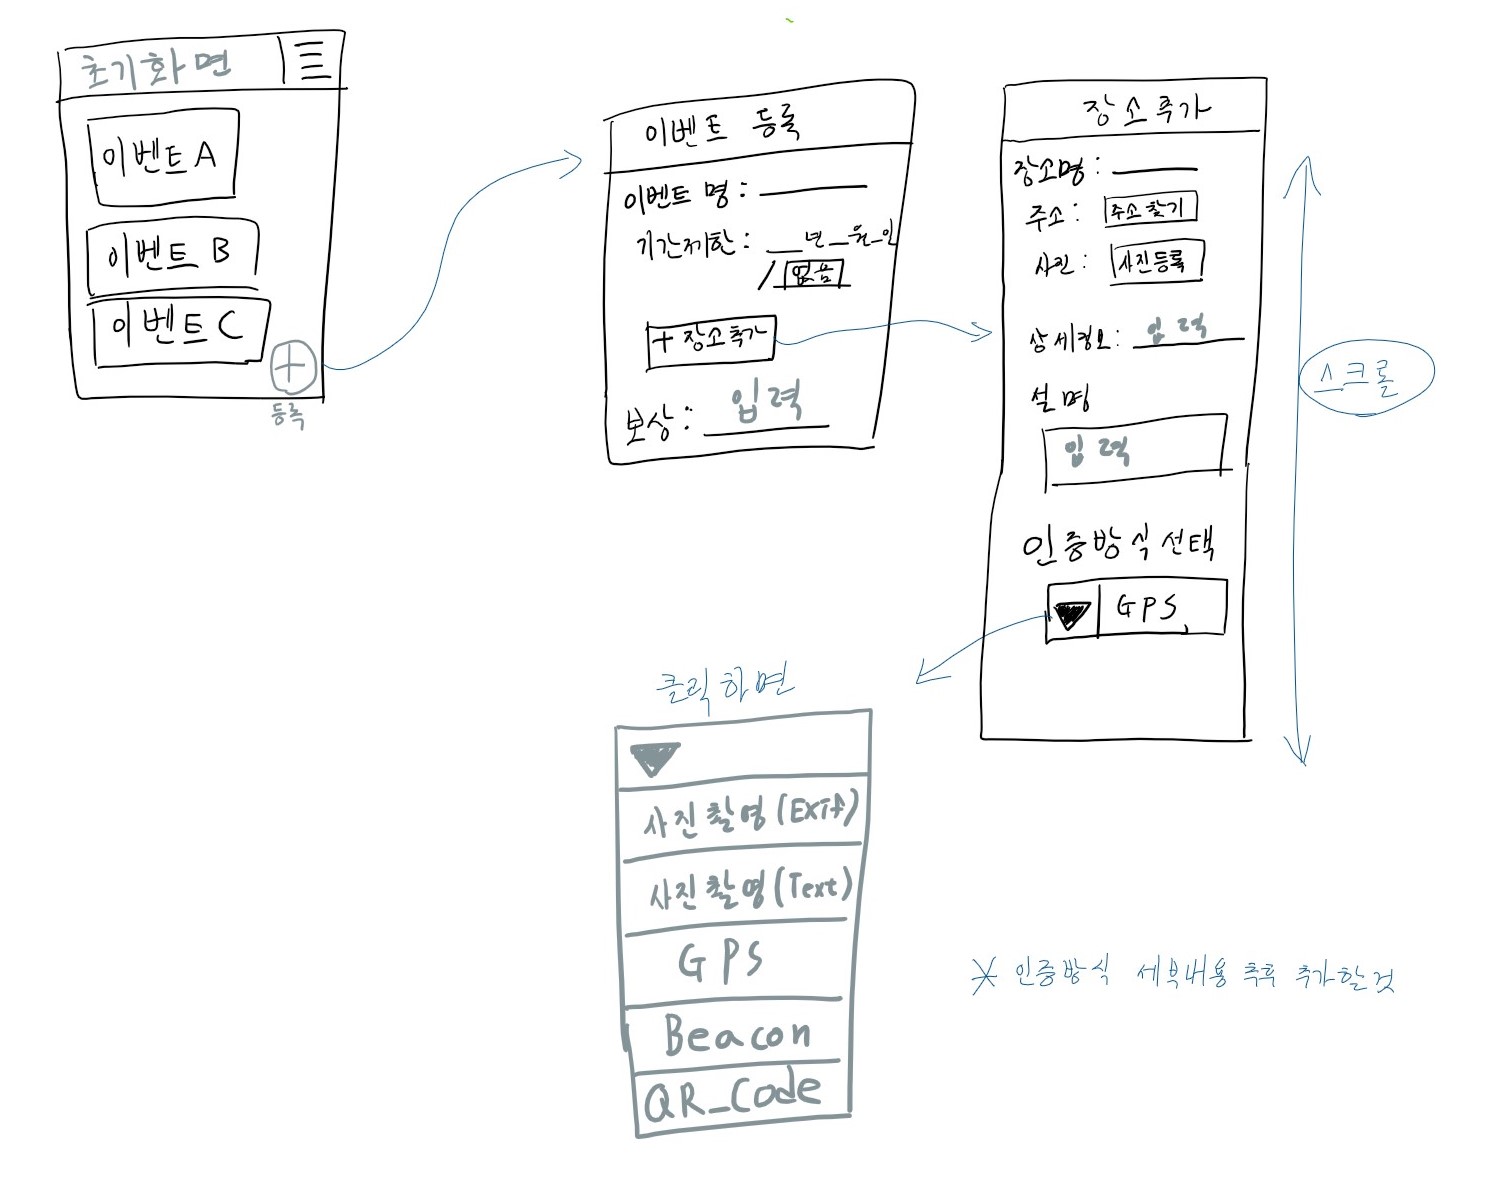 초기화면
이벤트 A
이벤트 B
이벤트 C
+
등록
이벤트 등록
이벤트 명 :
기간제한 : __년_월_일
/ 없음
+ 장소추가
보상 : 입력
장소추가
장소명 :
주소 : 주소찾기
사진 : 사진등록
상세정보 : 입력
설명
입력
인증방식선택
GPS
스크롤
클릭화면
사진촬영(Exif)
사진촬영(Text)
GPS
Beacon
QR_Code
* 인증방식 세부내용 추후 추가할것